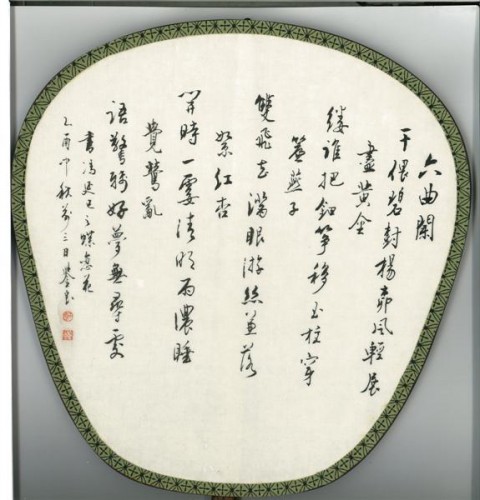 六曲闌
干偎碧樹楊柳風輕展
盡黃金
縷誰把鈿箏移玉柱穿
簾燕子
雙飛去滿眼游絲兼落
絮紅杏
開時一霎清明雨濃睡
覺鶯亂
語驚殘好夢無尋處
書馮延巳之蝶戀花
乙酉仲秋前三日書